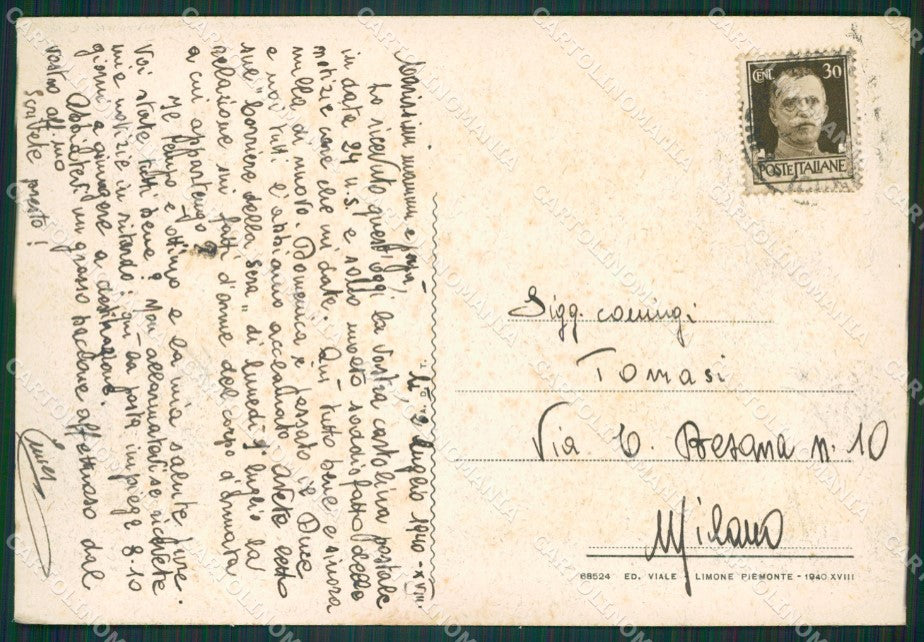 li 2 luglio 1940 - XVIII.
Carissimi mamma e papà,
Ho ricevuto quest'oggi la vostra cartolina postale
in data 24 u.s. e sono molto soddisfatto delle
notizie care che mi date. Qui tutto bene e sinora
nulla di nuovo. Domenica è passato il Duce
e noi tutti l'abbiamo acclamato. Avete letto
sul "Corriere della sera" di lunedì 1° luglio la
relazione sui fatti d'arme del corpo d'armata
a cui appartengo?
Il tempo è ottimo e la mia salute pure.
Voi state tutti bene? Non allarmatevi se ricevete
mie notizie in ritardo: qui la posta impiega 8-10
giorni a giungere a destinazione.
Abbiatevi un grosso bacione affettuoso dal
vostro aff.mo
Scrivete presto!
CENT. 30
POSTE ITALIANE
Sigg. coniugi
Tomasi
Via E. Besana n. 10
Milano
68524 ED. VIALE - LIMONE PIEMONTE - 1940.XVIII
CARTOLINOMANIA